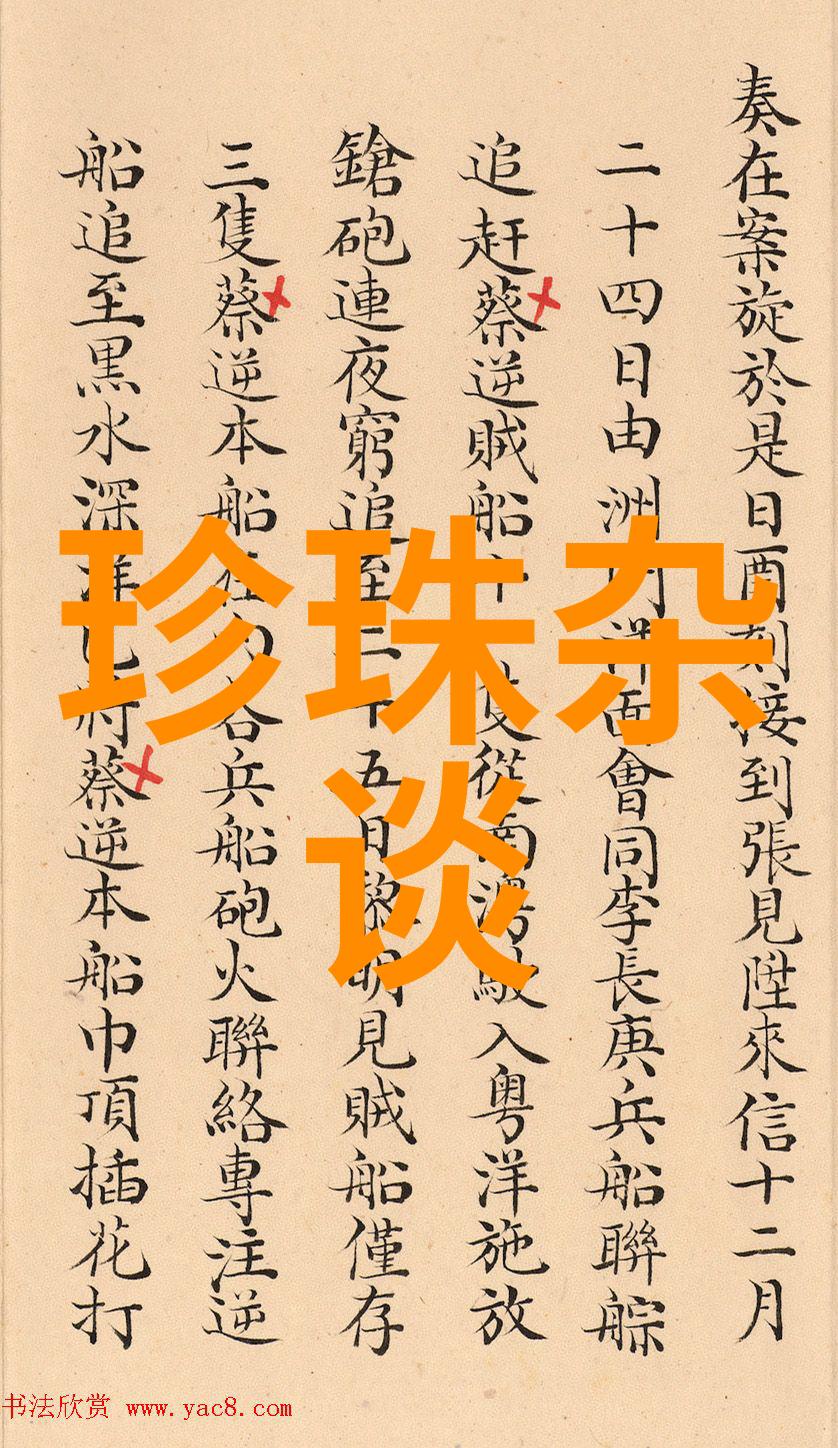 奏在案旋於是日酉刻接到張見陞來信十二月
二十四日由洲門洋面會同李長庚兵船聯䑸
追赶蔡逆賊船十隻從南澚駛入粤洋施放
鎗砲連夜窮追至二十五日黎明見賊船僅存
三隻蔡逆本船在內各兵船砲火聯絡專注逆
船追至黒水深洋已將蔡逆本船巾頂插花打
珍珠杂
谈
书法欣赏 www.yac8.com